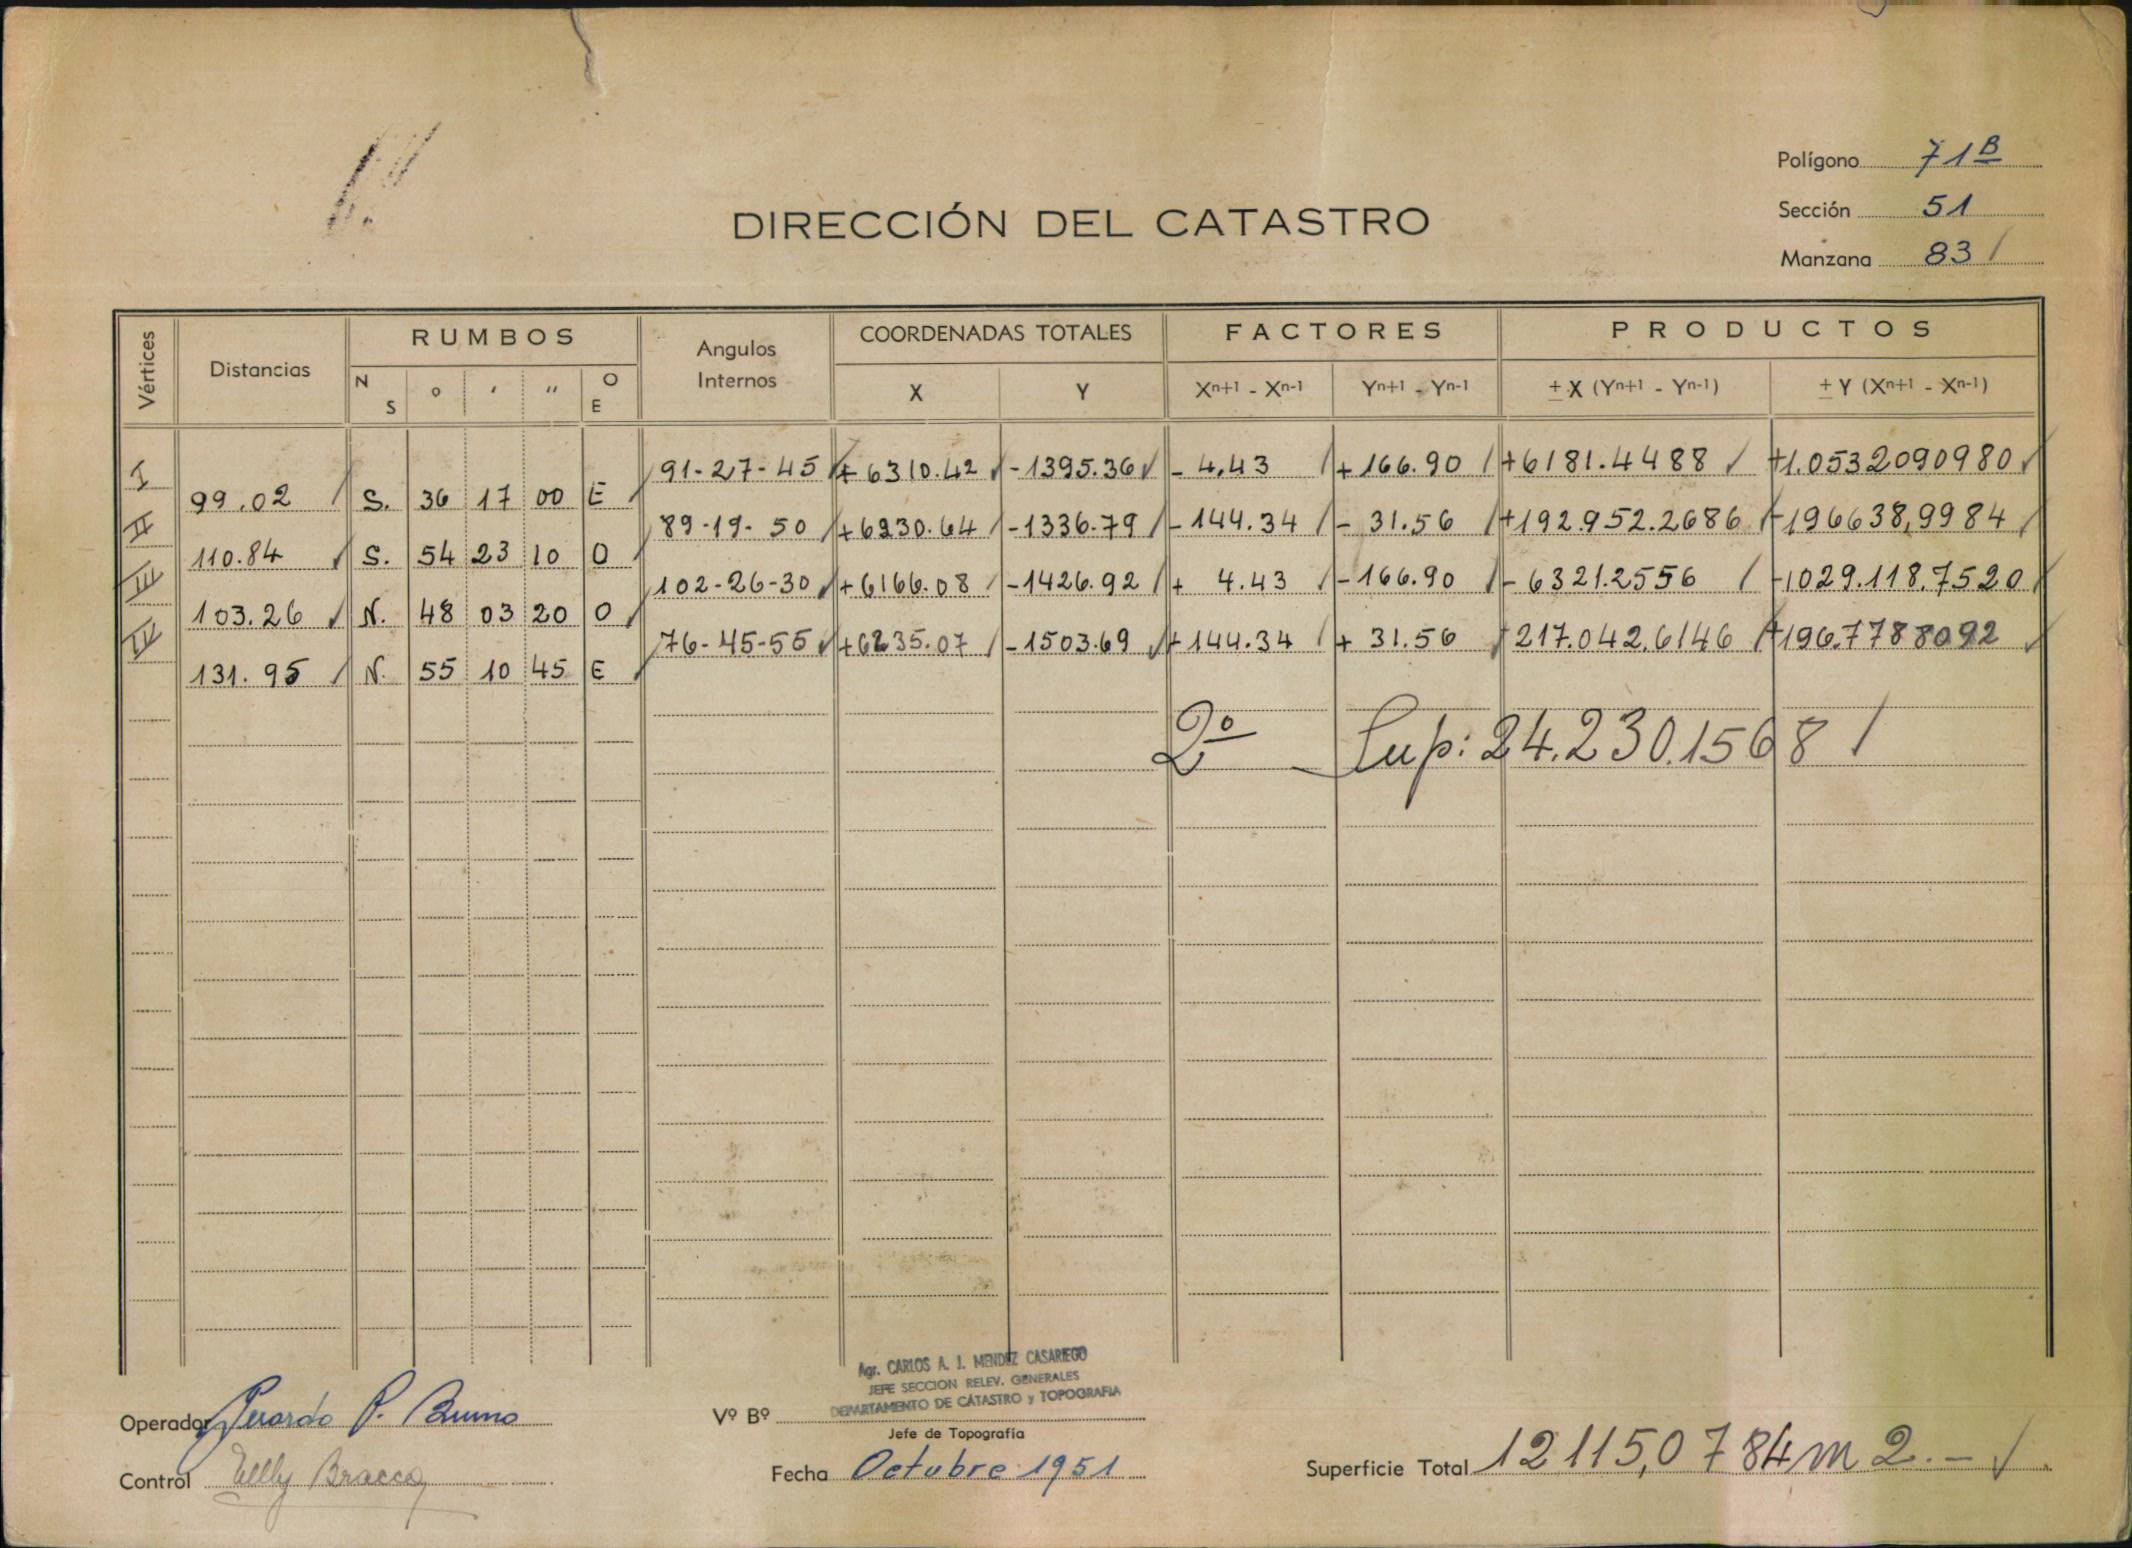 1ª
Polígono 71 B
Sección 51
Manzana 83 /
DIRECCIÓN DEL CATASTRO
Vértices Distancias RUMBOS Angulos Internos COORDENADAS TOTALES FACTORES PRODUCTOS
N S o ' '' O E X Y Xn+1 - Xn-1 Yn+1 - Yn-1 ± X (Yn+1 - Yn-1) ± Y (Xn+1 - Xn-1)
I 91-27-45 +6310.42 -1395.36 - 4,43 +166.90 +6181.4488 +1.0532090980
99.02 S. 36 17 00 E
II 89-19-50 +6230.64 -1336.79 -144.34 - 31.56 +192.952.2686 -196638,9984
110.84 S. 54 23 10 O
III 102-26-30 +6166.08 -1426.92 + 4.43 -166.90 - 6321.2556 -1029.118.7520
103.26 N. 48 03 20 O
IV 76-45-55 +6235.07 -1503.69 +144.34 + 31.56 217.042.6146 +196.7788092
131.95 N. 55 10 45 E
2º Sup: 24.230.1568 /
Agr. CARLOS A. I. MENDEZ CASARIEGO
JEFE SECCION RELEV. GENERALES
DEPARTAMENTO DE CATASTRO y TOPOGRAFIA
Operador Gerardo P. Bruno Vº Bº
Jefe de Topografía
Control Elly Bracco Fecha Octubre 1951 Superficie Total 12115,0784 m2.-